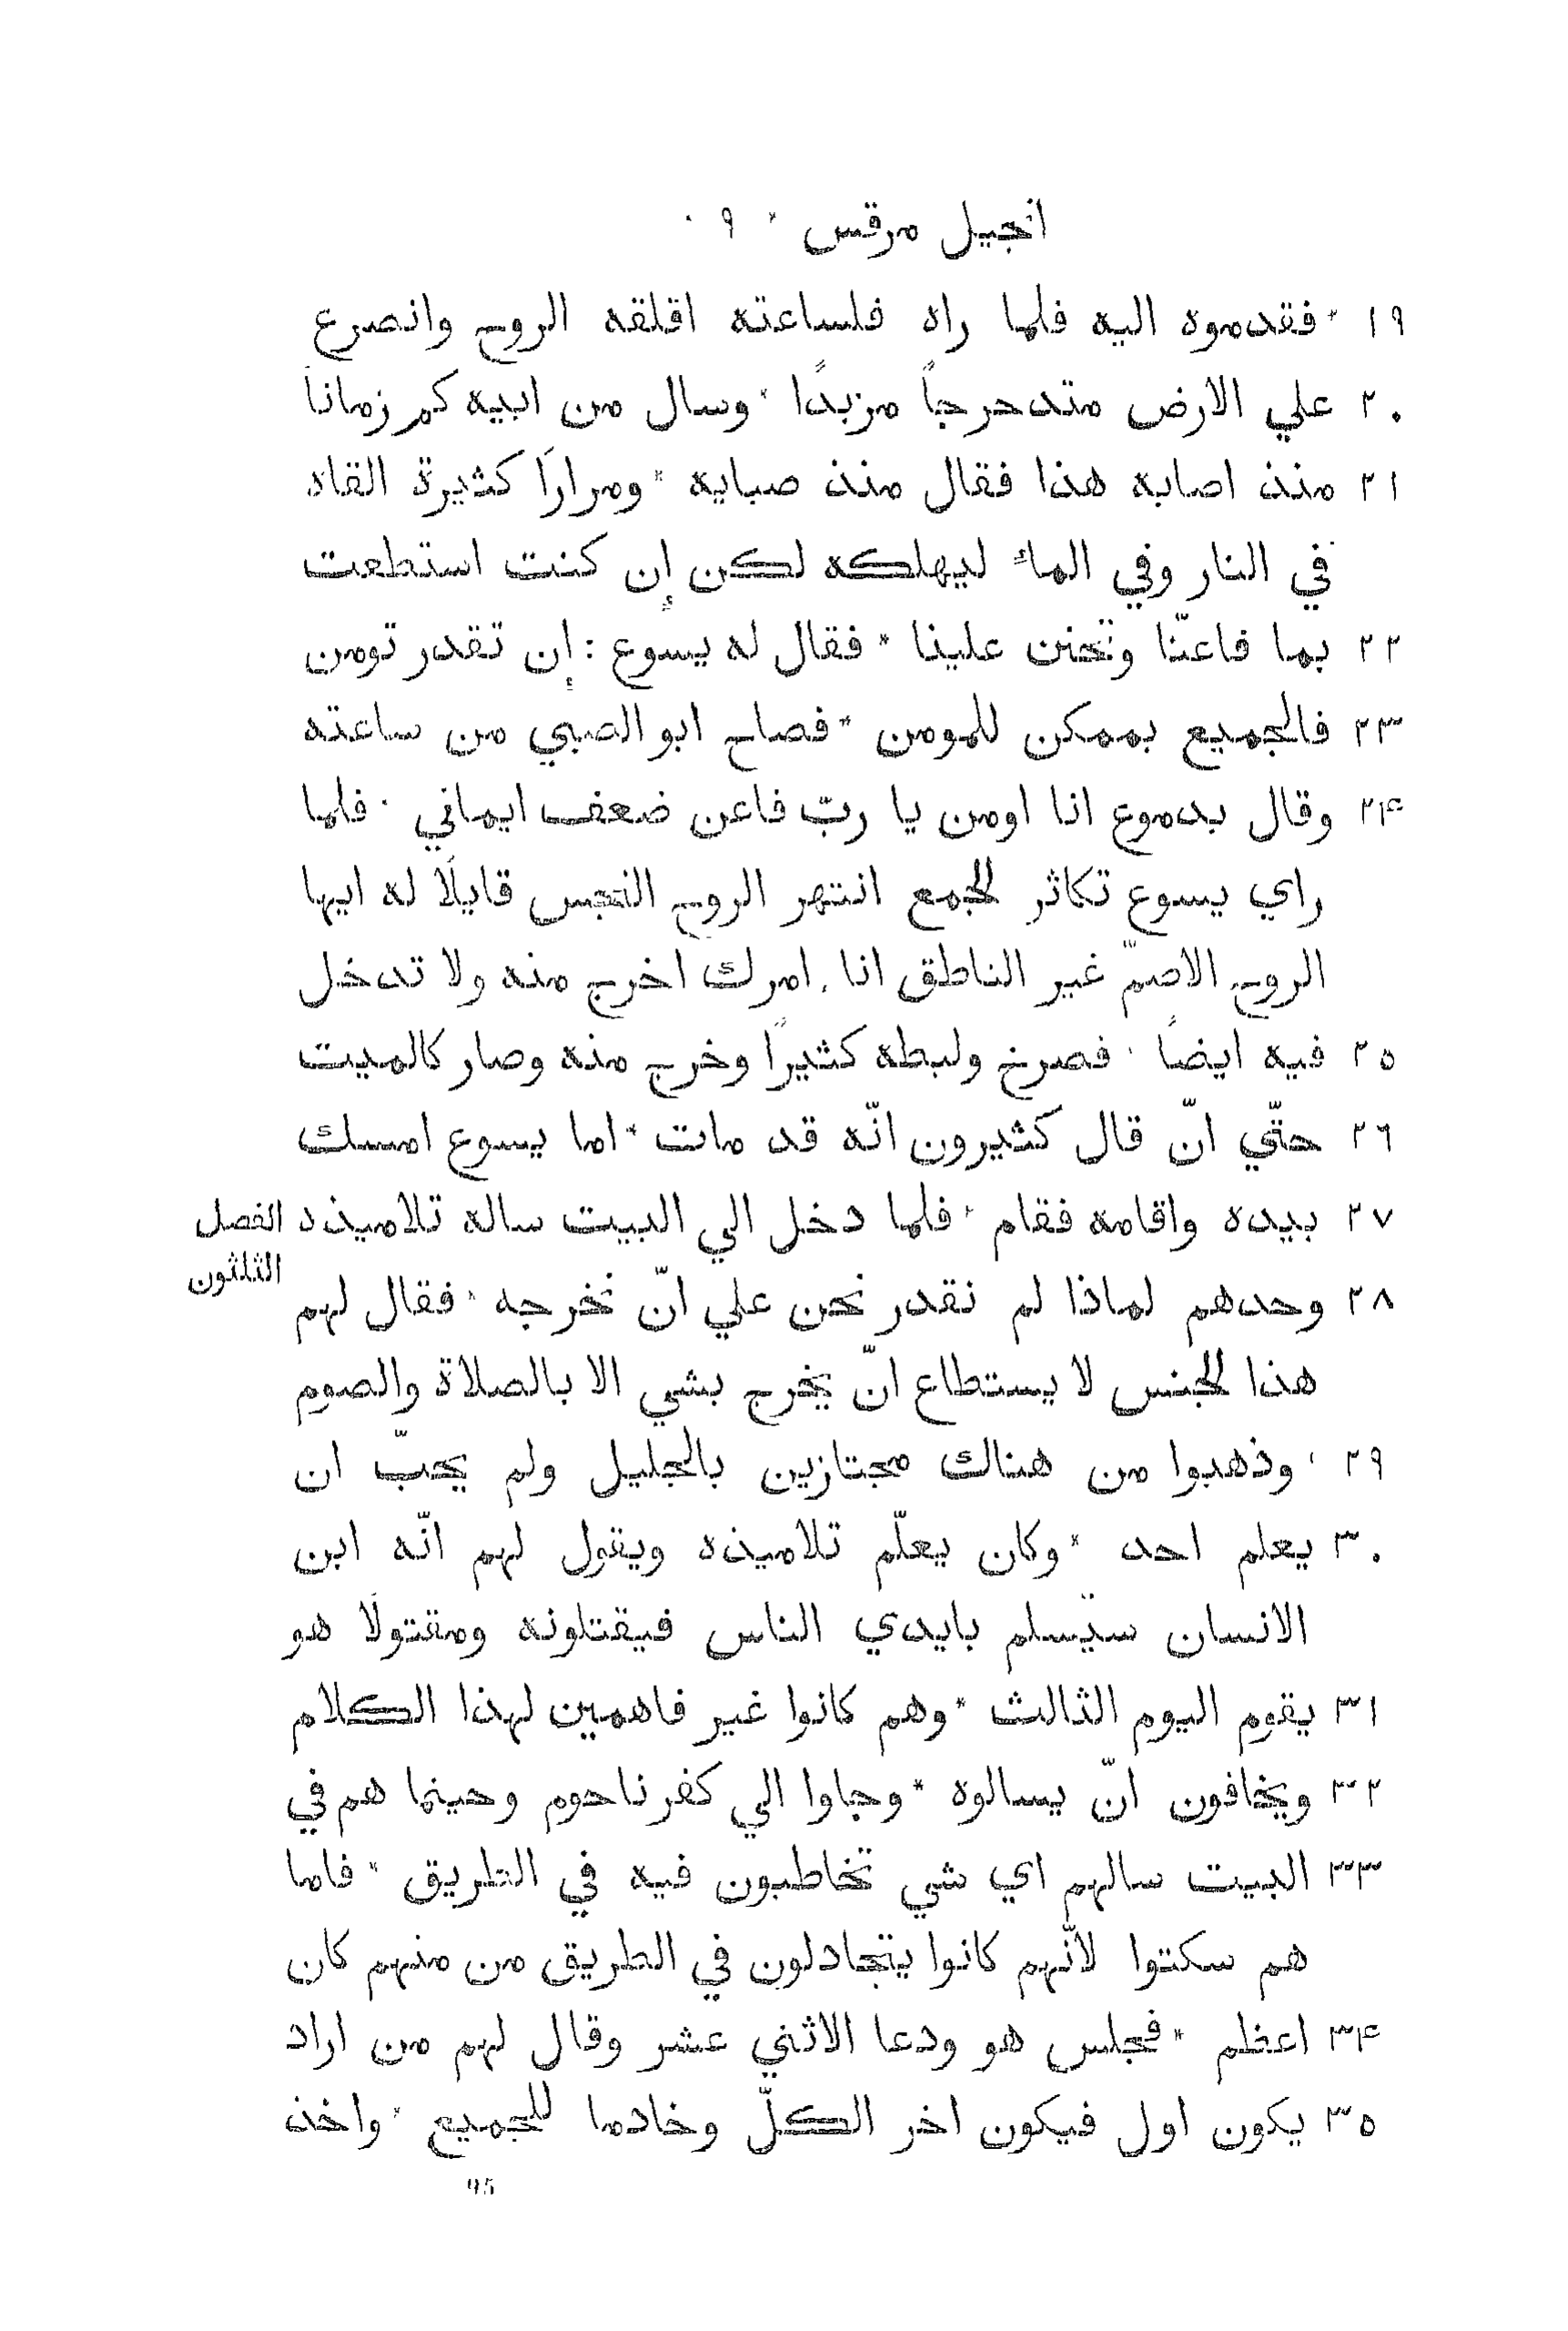 انجيل مرقس * ٩ ٠
١٩ * فقدموه اليه فلما راه فلساعته اقلقه الروح وانصرع
٢٠ علي الارض متدحرجاً مزبداً * وسال من ابيه كم زماناً
٢١ منذ اصابه هذا فقال منذ صبايه * ومراراً كثيرة القاه
في النار وفي الماء ليهلكه لكن إن كنت استطعت
٢٢ بما فاعنّا وتحنن علينا * فقال له يسوع : إن تقدر تومن
٢٣ فالجميع بممكن للمومن * فصاح ابو الصبي من ساعته
٢٤ وقال بدموع انا اومن يا ربّ فاعن ضعف ايماني * فلما
راي يسوع تكاثر الجمع انتهر الروح النجس قايلاً له ايها
الروح الاصمّ غير الناطق انا امرك اخرج منه ولا تدخل
٢٥ فيه ايضاً * فصرخ ولبطه كثيراً وخرج منه وصار كالميت
٢٦ حتّي انّ قال كثيرون انّه قد مات * اما يسوع امسك
٢٧ بيده واقامه فقام * فلما دخل الي البيت ساله تلاميذه الفصل
الثلثون
٢٨ وحدهم لماذا لم نقدر نحن علي انّ نخرجه * فقال لهم
هذا الجنس لا يستطاع انّ يخرج بشي الا بالصلاة والصوم
٢٩ * وذهبوا من هناك مجتازين بالجليل ولم يحبّ ان
٣٠ يعلم احد * وكان يعلّم تلاميذه ويقول لهم انّه ابن
الانسان سيّسلم بايدي الناس فيقتلونه ومقتولاً هو
٣١ يقوم اليوم الثالث * وهم كانوا غير فاهمين لهذا الكلام
٣٢ ويخافون انّ يسالوه * وجاوا الي كفرناحوم وحينما هم في
٣٣ البيت سالهم اي شي تخاطبون فيه في الطريق * فاما
هم سكتوا لانّهم كانوا يتجادلون في الطريق من منهم كان
٣٤ اعظم * فجلس هو ودعا الاثني عشر وقال لهم من اراد
٣٥ يكون اول فيكون اخر الكلّ وخادما للجميع * واخذ
95